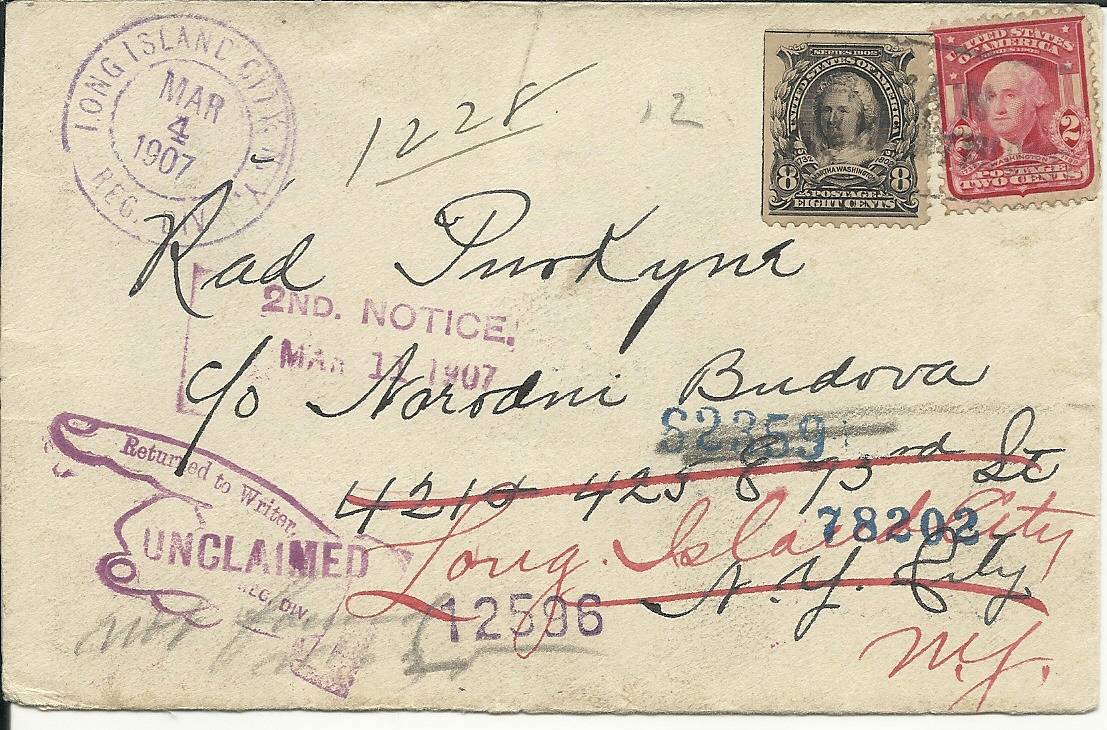 LONG ISLAND CITY, N.Y.
MAR
4
1907
REG. DIV.
1228
12
SERIES 1902
UNITED STATES OF AMERICA
1732 1802
MARTHA WASHINGTON
8 POSTAGE 8
EIGHT CENTS
UNITED STATES
OF AMERICA
SERIES 1902
2 2
WASHINGTON
POSTAGE
TWO CENTS
Rad Purkyne
2ND. NOTICE.
MAR 11 1907
c/o Narodni Budova
62359
421 425 E 73rd St
Returned to Writer,
UNCLAIMED
REG. DIV.
Long Island City
78202
N. Y. City
12596
N.Y.